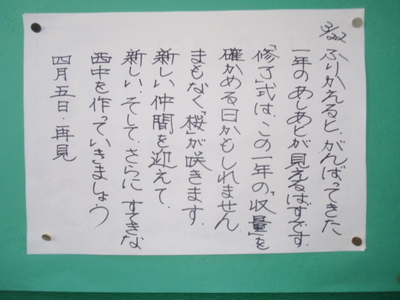 3/22
ふりかえると、がんばってきた
一年のあしあとが見えるはずです。
「修了」式は、この一年の"収量"を
確かめる日かもしれません。
まもなく、"桜"が咲きます。
新しい仲間を迎えて、
新しい、そして、さらに すてきな
西中を作っていきましょう
四月五日・再見